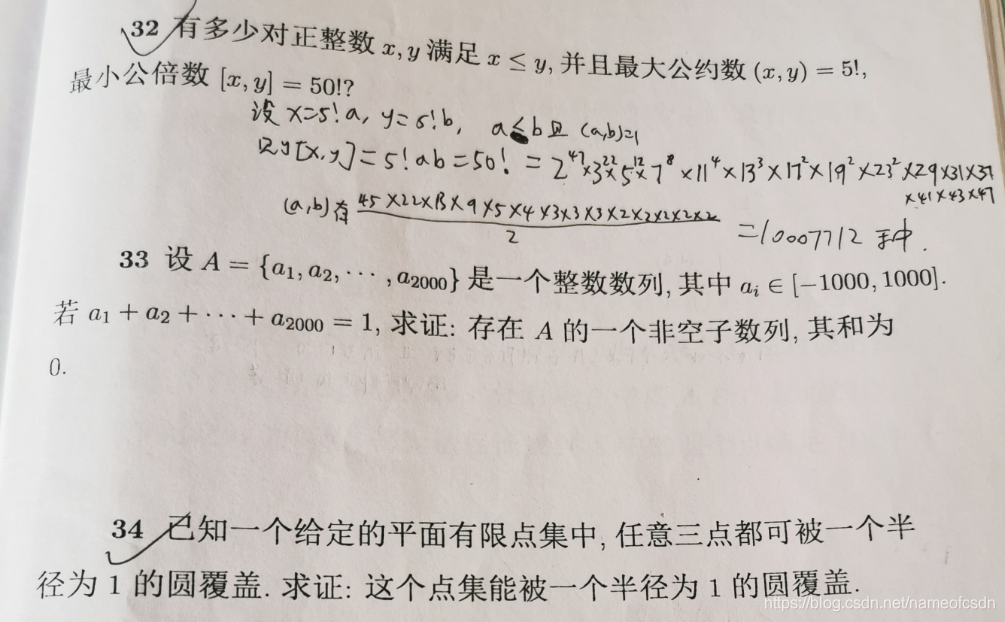 32 有多少对正整数 x, y 满足 x ≤ y, 并且最大公约数 (x, y) = 5!,
最小公倍数 [x, y] = 50!?
设 x=5!a, y=5!b, a≤b且 (a,b)=1
[x,y]=5!ab=50! = 2^47×3^22×5^12×7^8×11^4×13^3×17^2×19^2×23^2×29×31×37
×41×43×47
(a,b)有 45×22×13×9×5×4×3×3×3×2×2×2×2×2
2
=10007712 种.
33 设 A = {a₁, a₂, ⋯, a₂₀₀₀} 是一个整数数列, 其中 aᵢ ∈ [−1000, 1000].
若 a₁ + a₂ + ⋯ + a₂₀₀₀ = 1, 求证: 存在 A 的一个非空子数列, 其和为
0.
34 已知一个给定的平面有限点集中, 任意三点都可被一个半
径为 1 的圆覆盖. 求证: 这个点集能被一个半径为 1 的圆覆盖.
https://blog.csdn.net/nameofcsdn